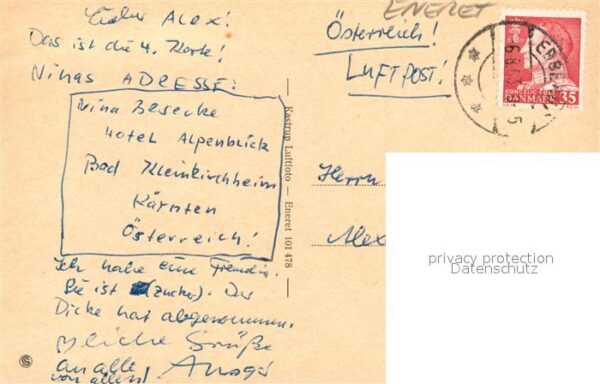 Lieber ALEX!
Das ist die 4. Karte!
Ninas ADRESSE:
Nina Besecke
Hotel Alpenblick
Bad Kleinkirchheim
Kärnten
Österreich!
Ich habe eine Freundin.
Sie ist (Zucker). Der
Dicke hat abgenommen.
liche Grüße
an alle
von allen!
Kastrup Luftfoto — Eneret 101 478
ENERET
Österreich!
LUFTPOST!
KONGELIG POST
DANMARK 35
Herrn
Alex
privacy protection
Datenschutz